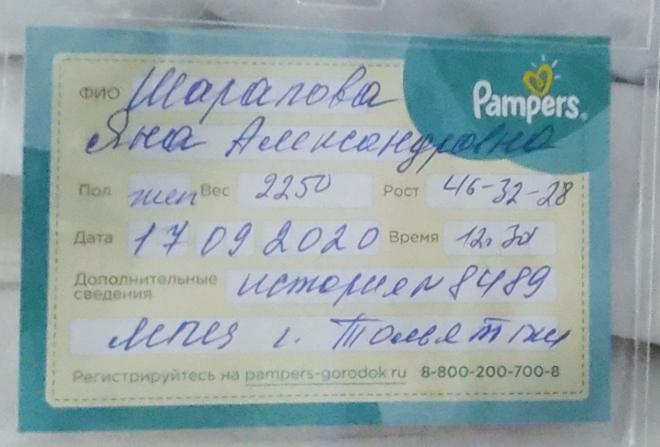 Pampers
ФИО Шарапова
Яна Александровна
Пол жен Вес 2250 Рост 46-32-28
Дата 17 09 2020 Время 12.30
Дополнительные сведения история № 8489
МПЦ г. Тольятти
Регистрируйтесь на pampers-gorodok.ru 8-800-200-700-8